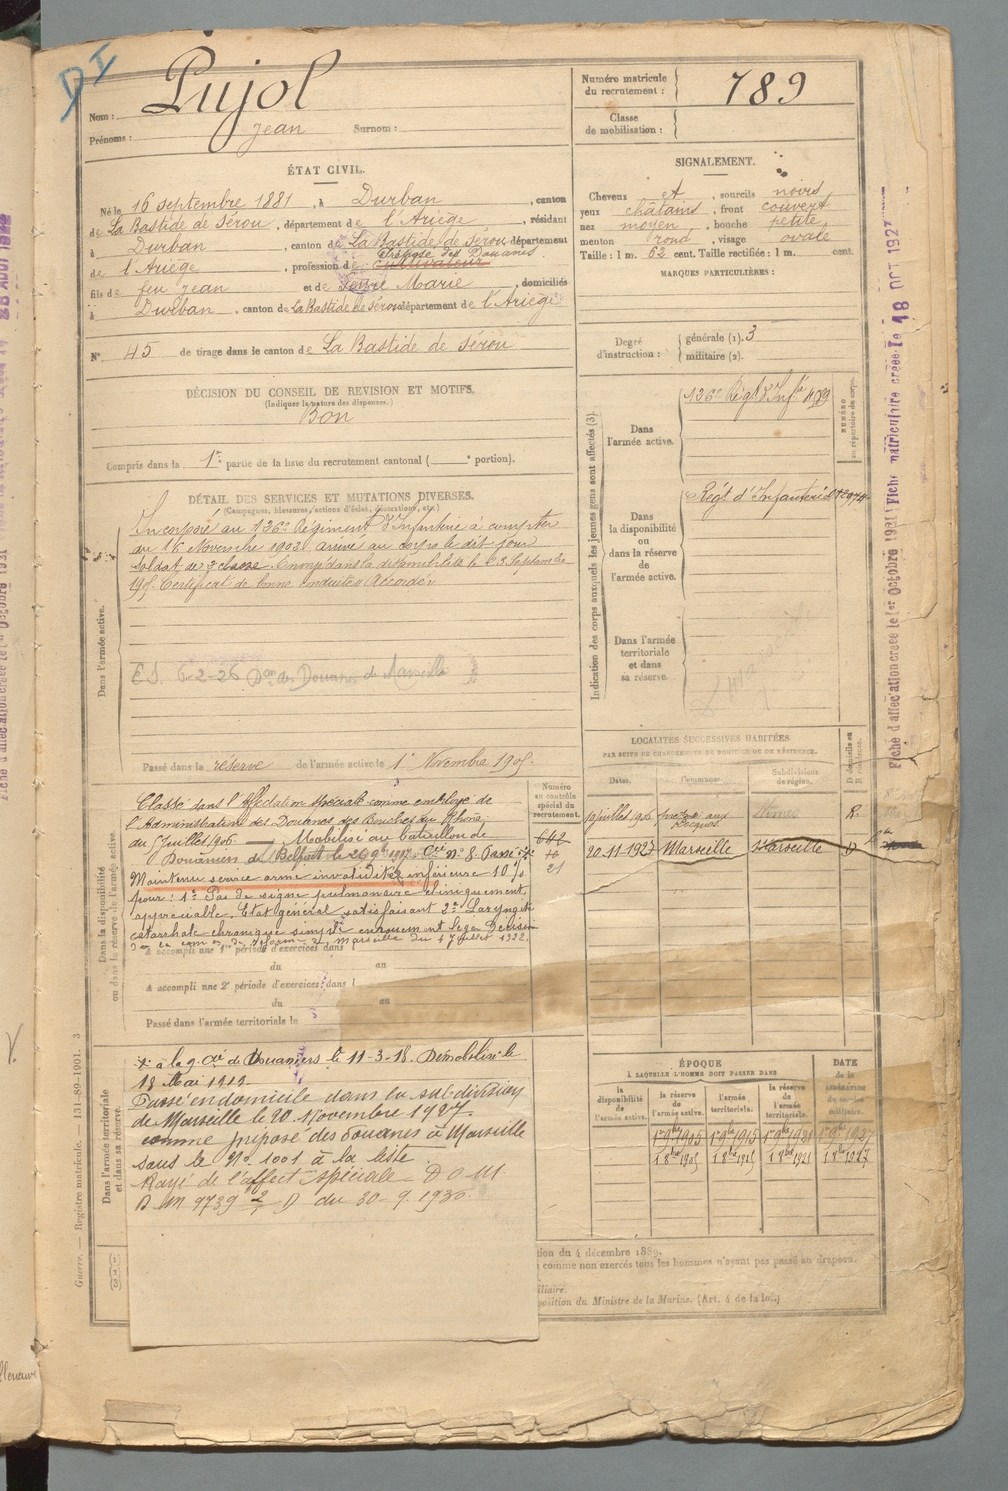 DI
Nom : Pujol
Prénoms : Jean Surnom :
Numéro matricule du recrutement : 789
Classe de mobilisation :
ÉTAT CIVIL.
Né le 16 septembre 1881, à Durban, canton
de La Bastide de Sérou, département de l'Ariège, résidant
à Durban, canton de La Bastide de Sérou, département
Préposé des Douanes
de l'Ariège, profession de cultivateur
fils de feu Jean et de Marie, domiciliés
à Durban, canton de La Bastide de Sérou département de l'Ariège
N° 45 de tirage dans le canton de La Bastide de Sérou
SIGNALEMENT.
Cheveux et, sourcils noirs
yeux châtains, front couvert
nez moyen, bouche petite
menton rond, visage ovale
Taille : 1 m. 62 cent. Taille rectifiée : 1 m. cent.
MARQUES PARTICULIÈRES :
Degré d'instruction : générale (1). 3
militaire (2).
DÉCISION DU CONSEIL DE REVISION ET MOTIFS.
(Indiquer la nature des dispenses.)
Bon
Compris dans la 1re partie de la liste du recrutement cantonal ( e portion).
DÉTAIL DES SERVICES ET MUTATIONS DIVERSES.
(Campagnes, blessures, actions d'éclat, décorations, etc.)
Dans l'armée active.
Incorporé au 136e Régiment d'Infanterie à compter
du 16 Novembre 1902 arrivé au corps le dit jour
soldat de 2e classe. Envoyé dans la disponibilité le 23 Septembre
1905 Certificat de bonne conduite « Accordé »
E.S. 6-2-26 Don des Douanes de Marseille
Passé dans la réserve de l'armée active le 1er Novembre 1905.
Indication des corps auxquels les jeunes gens sont affectés (3).
NUMÉRO au répertoire du corps.
Dans l'armée active.
136e Régt d'Infie
Dans la disponibilité ou dans la réserve de l'armée active.
Régt d'Infanterie
Dans l'armée territoriale et dans sa réserve.
LOCALITÉS SUCCESSIVES HABITÉES
PAR SUITE DE CHANGEMENTS DE DOMICILE OU DE RÉSIDENCE.
Dates. Communes. Subdivisions de région. D domicile ou R résidence.
juillet 1906 Nîmes R.
20-11-1927 Marseille Marseille D
Dans la disponibilité ou dans la réserve de l'armée active.
Numéro au contrôle spécial du recrutement.
642
10
21
Classé dans l'affectation spéciale comme employé de
l'Administration des Douanes des Bouches du Rhône
du 1 Juillet 1906. — Mobilisé au bataillon de
Douaniers de Belfort le 26 9bre 1917. Cie n° 8. Passé
Maintenu service armé invalidité inférieure 10 %
pour : 1° Pas de signe pulmonaire cliniquement
appréciable. Etat général satisfaisant 2° Laryngite
catarrhale chronique simple enrouement léger Décision
de la com on de réforme de Marseille du 4 Juillet 1922.
a accompli une 1re période d'exercices dans
du au
a accompli une 2e période d'exercices dans l
du au
Passé dans l'armée territoriale le
Dans l'armée territoriale et dans sa réserve.
à la 9e Cie de Douaniers le 11-3-18. Démobilisé le
18 Mai 1919.
Passé en domicile dans la subdivision
de Marseille le 20 Novembre 1927.
comme préposé des douanes à Marseille
sous le N° 1001 à la liste
Rayé de l'affect spéciale - D O M
B M 9739 2/1 D du 30-9-1930
ÉPOQUE
À LAQUELLE L'HOMME DOIT PASSER DANS
la disponibilité de l'armée active. la réserve de l'armée active. l'armée territoriale. la réserve de l'armée territoriale.
DATE de la libération du service militaire.
1er 9bre 1905 1er 9bre 1915 1er 9bre 1921 1er 9bre 1927
1 8bre 1905 1 8bre 1915 1 8bre 1921 1 8bre 1927
tion du 4 décembre 1889.
comme non exercés tous les hommes n'ayant pas passé au drapeau.
iliaire.
position du Ministre de la Marine. (Art. 4 de la loi.)
Guerre. — Registre matricule. 131-89-1901. 3
Fiche d'affectation créée le 1er Octobre 1931
Fiche matriculaire créée le 18 OCT 1927
28 AOUT
lleneuve